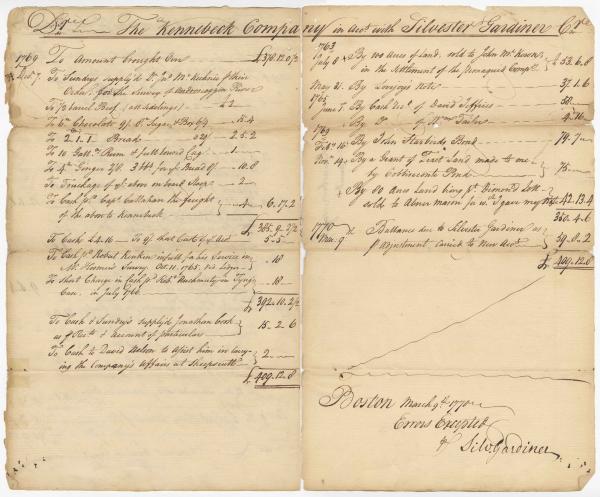 Dr. The Kennebeck Company in Acct. with Silvester Gardiner Cr.
1769 To Amount brought Over £378.12.0½
Decr. 7. To Sundrys supply'd Dr. Jno. McKechnie & their
Order, for the Survey of Androscoggin River
To ½ barrel Beef, £2
To Chocolate Sugar 15.4
To 2.1.1 Bread 2.5.2
To 10 Galls. Rum & full bound Cag 1
To Ginger Bread 10.8
To Truckage of ye. above on board Sloop 2
To Cash pd. Capt. Callahan the freight
of the above to Kennebeck 4 6.17.2
£385.9.2½
To Cash £4.16 5.5
To Cash pd. Robert Rankin in full for his Service in
Survey Octr. 11. 1765. 18
To Short Charge in Cash pd. Robt. in
Case, in July 1766 18
£392.10.2½
To Cash & Sundrys supply'd Jonathan
as & Account of particulars 15.2.6
To Cash to David to assist him in carry-
ing the Company's Affairs at Sheepscutt 2
£409.12.8
1763
July 8 By 100 Acres of Land, sold to John McKown
in the Settlement of the £53.6.8
May 21. By Lovejoys Note 37.1.6
1765
June 7. By Cash of David Jeffries 50
By Do. of Wm. Tailer 4.16
1769
Feby. 16 By John Starbirds Bond 74.7
Novr. 14. By a Grant of Land made to me
by Cobbiscont Pond 75
By 80 Acre Land
sold to Abner Mason 42.13.4
360.4.6
1770
Mar. 9 Ballance due to Silvester Gardiner as
p adjustment carried to New Acct. 39.8.2
£409.12.8
Boston March 9th. 1770
Errors Excepted
p Silv. Gardiner